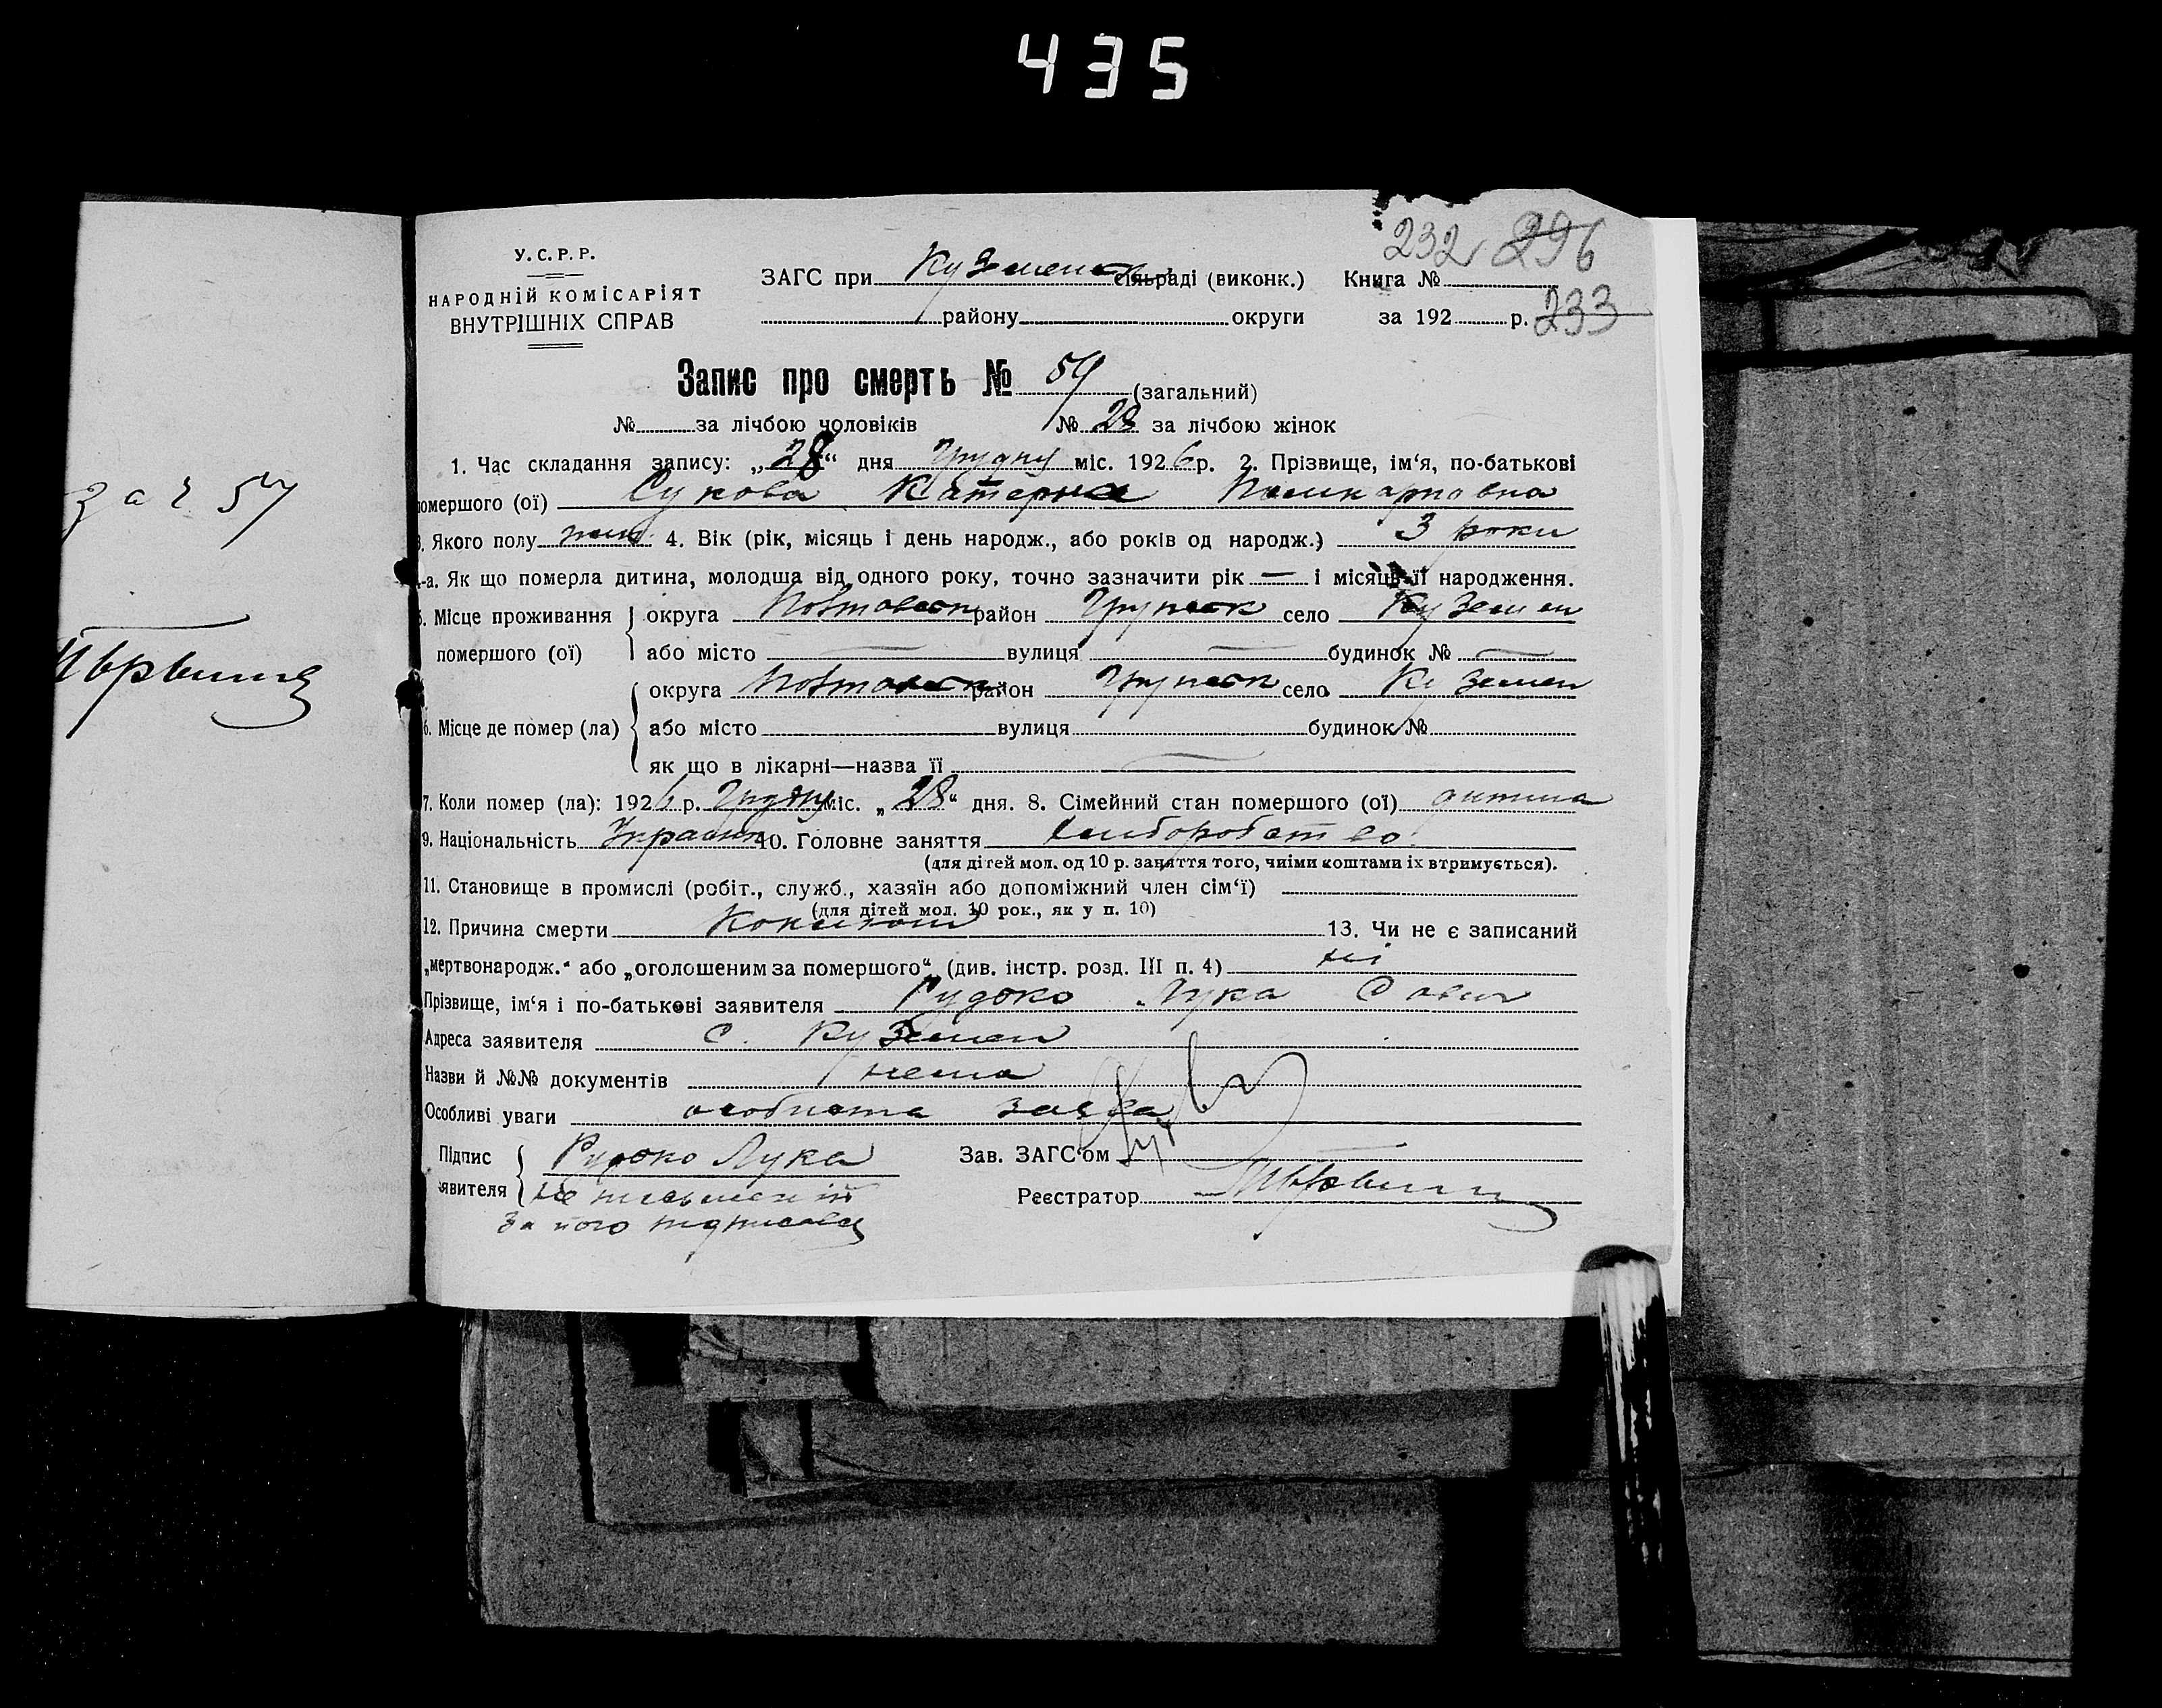 435
232 296
У.С.Р.Р.
НАРОДНІЙ КОМІСАРІЯТ
ВНУТРІШНІХ СПРАВ
ЗАГС при Куземенск сільраді (виконк.) Книга №
району округи за 192 р. 233
Запис про смерть № 57 (загальний)
№ за лічбою чоловіків № 28 за лічбою жінок
1. Час складання запису: „28“ дня Грудну міс. 1926 р. 2. Прізвище, ім‘я, по-батькові
омершого (ої) Сукова Катерина Поликарповна
3. Якого полу жін. 4. Вік (рік, місяць і день народж., або років од народж.) 3 роки
-а. Як що померла дитина, молодша від одного року, точно зазначити рік — і місяць її народження.
5. Місце проживання округа Полтавськ район Грунськ село Куземен
помершого (ої) або місто — вулиця — будинок № —
округа Полтавськ район Грунськ село Куземен
6. Місце де помер (ла) або місто вулиця будинок №
як що в лікарні—назва її —
7. Коли помер (ла): 1926 р. Грудну міс. „28“ дня. 8. Сімейний стан помершого (ої) дитина
9. Національність Украинк 10. Головне заняття хлиборобство
(для дітей мол. од 10 р. заняття того, чиїми коштами їх втримується).
11. Становище в промислі (робіт., служб., хазяїн або допоміжний член сім‘ї)
(для дітей мол. 10 рок., як у п. 10)
12. Причина смерти Коклюш 13. Чи не є записаний
„мертвонародж.“ або „оголошеним за помершого“ (див. інстр. розд. III п. 4) ні
Прізвище, ім‘я і по-батькові заявителя Рудоко Лука Савич
Адреса заявителя с. Куземен
Назви й №№ документів нема
Особливі уваги особиста заява
Підпис Рудоко Лука Зав. ЗАГС‘ом
явителя не письменій Реєстратор
За його підписався
за г. 57